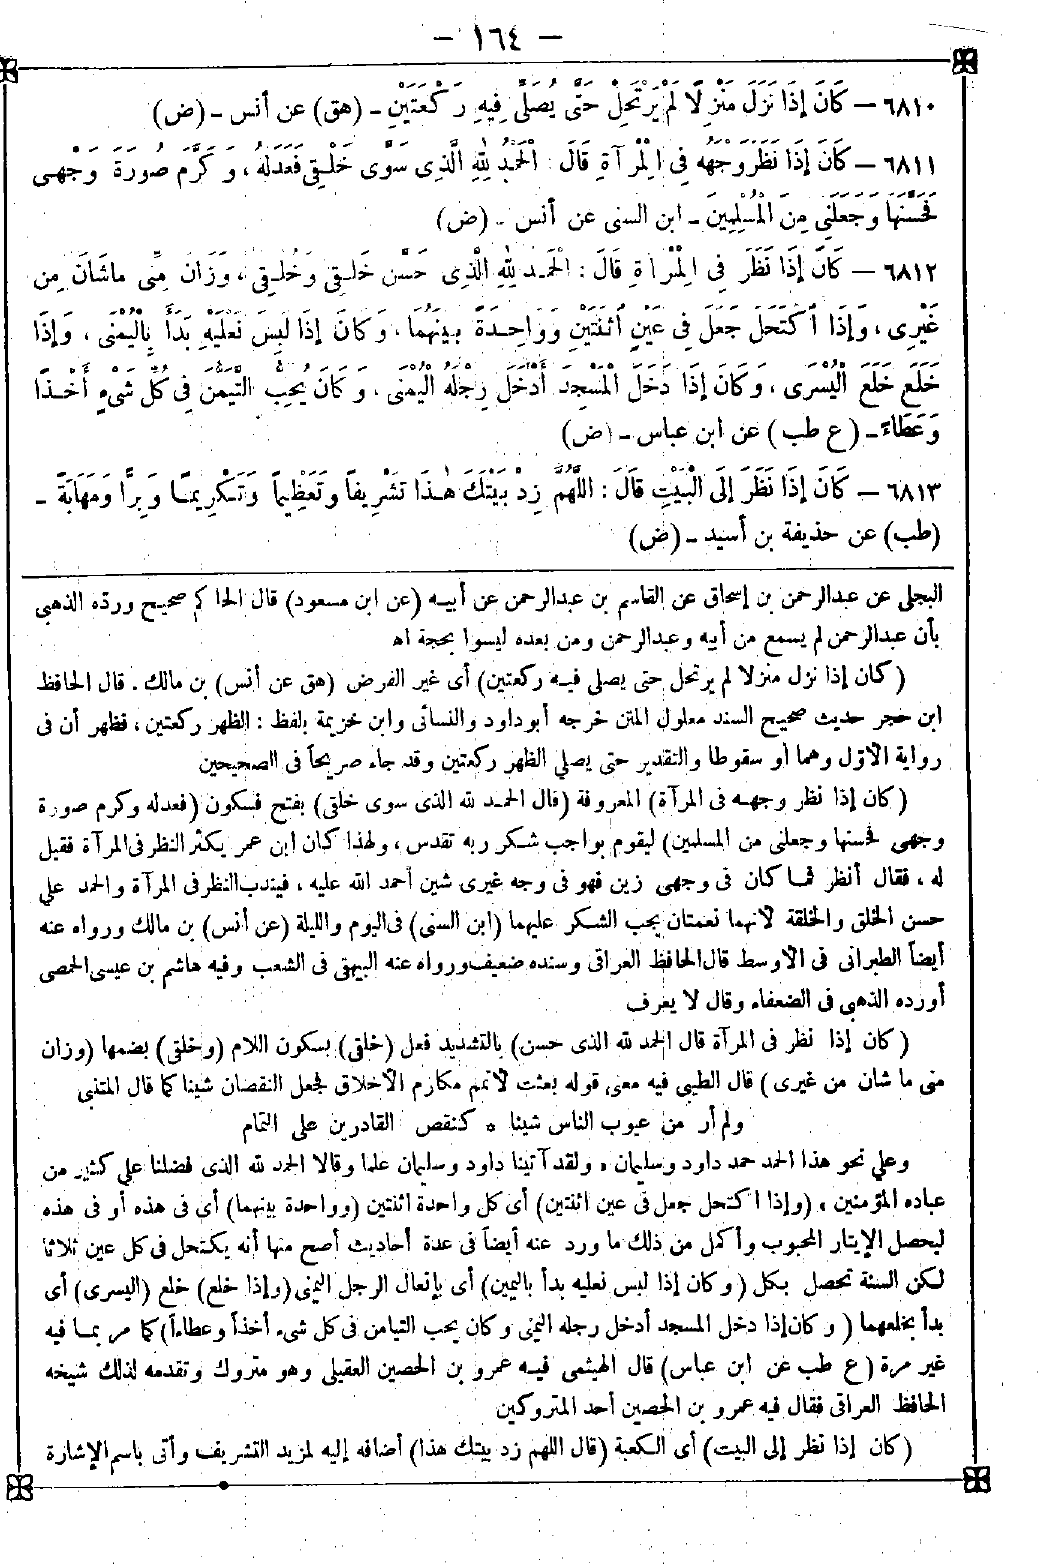 – ١٦٤ –
٦٨١٠ – كَانَ إِذَا نَزَلَ مَنْزِلًا لَمْ يَرْتَحِلْ حَتَّى يُصَلِّىَ فِيهِ رَكْعَتَيْنِ – (هق) عن أنس – (ض)
٦٨١١ – كَانَ إِذَا نَظَرَ وَجْهَهُ فِى الْمِرْآةِ قَالَ : الْحَمْدُ لِلّٰهِ الَّذِى سَوَّى خَلْقِى فَعَدَلَهُ ، وَكَرَّمَ صُورَةَ وَجْهِى
فَحَسَّنَهَا وَجَعَلَنِى مِنَ الْمُسْلِمِينَ – ابن السنى عن أنس – (ض)
٦٨١٢ – كَانَ إِذَا نَظَرَ فِى الْمِرْآةِ قَالَ : الْحَمْدُ لِلّٰهِ الَّذِى حَسَّنَ خَلْقِى وَخُلُقِى ، وَزَانَ مِنِّى مَاشَانَ مِن
غَيْرِى ، وَإِذَا اكْتَحَلَ جَعَلَ فِى عَيْنٍ اثْنَتَيْنِ وَوَاحِدَةً بَيْنَهُمَا ، وَكَانَ إِذَا لَبِسَ نَعْلَيْهِ بَدَأَ بِالْيُمْنَى ، وَإِذَا
خَلَعَ خَلَعَ الْيُسْرَى ، وَكَانَ إِذَا دَخَلَ الْمَسْجِدَ أَدْخَلَ رِجْلَهُ الْيُمْنَى ، وَكَانَ يُحِبُّ التَّيَمُّنَ فِى كُلِّ شَىْءٍ أَخْذًا
وَعَطَاءً – (ع طب) عن ابن عباس – (ض)
٦٨١٣ – كَانَ إِذَا نَظَرَ إِلَى الْبَيْتِ قَالَ : اللَّهُمَّ زِدْ بَيْتَكَ هٰذَا تَشْرِيفاً وَتَعْظِيماً وَتَكْرِيماً وَبِرًّا وَمَهَابَةً –
(طب) عن حذيفة بن أسيد – (ض)
البجلى عن عبدالرحمن بن إسحاق عن القاسم بن عبدالرحمن عن أبيه (عن ابن مسعود) قال الحاكم صحيح ورده الذهبى
بأن عبدالرحمن لم يسمع من أبيه وعبدالرحمن ومن بعده ليسوا بحجة اه
(كان إذا نزل منزلا لم يرتحل حتى يصلى فيه ركعتين) أى غير الفرض (هق عن أنس) بن مالك . قال الحافظ
ابن حجر حديث صحيح السند معلول المتن خرجه أبو داود والنسائى وابن خزيمة بلفظ : الظهر ركعتين ، فظهر أن فى
رواية الأول وهما أو سقوطا والتقدير حتى يصلي الظهر ركعتين وقد جاء صريحاً فى الصحيحين
(كان إذا نظر وجهه فى المرآة) المعروفة (قال الحمد لله الذى سوى خلقى) بفتح فسكون (فعدله وكرم صورة
وجهى فحسنها وجعلنى من المسلمين) ليقوم بواجب شكر ربه تقدس ، ولهذا كان ابن عمر يكثر النظر فى المرآة فقيل
له ، فقال أنظر فما كان فى وجهى زين فهو فى وجه غيرى شين أحمد الله عليه ، فيندب النظر فى المرآة والحمد علي
حسن الخلق والخلقة لأنهما نعمتان يجب الشكر عليهما (ابن السنى) فى اليوم والليلة (عن أنس) بن مالك ورواه عنه
أيضاً الطبرانى فى الأوسط قال الحافظ العراقى وسنده ضعيف ورواه عنه البيهقى فى الشعب وفيه هاشم بن عيسى الحمصى
أورده الذهبى فى الضعفاء وقال لا يعرف
(كان إذا نظر فى المرآة قال الحمد لله الذى حسن) بالتشديد فعل (خلقى) بسكون اللام (وخلقى) بضمها (وزان
منى ما شان من غيرى) قال الطيبى فيه معنى قوله بعثت لأتمم مكارم الأخلاق فجعل النقصان شينا كما قال المتنبى
ولم أر من عيوب الناس شيئا * كنقص القادرين على التمام
وعلي نحو هذا الحمد حمد داود وسليمان ، ولقد آتينا داود وسليمان علما وقالا الحمد لله الذى فضلنا علي كثير من
عباده المؤمنين ، (وإذا اكتحل جعل فى عين اثنتين) أى كل واحدة اثنتين (وواحدة بينهما) أى فى هذه أو فى هذه
ليحصل الإيتار المحبوب وأكمل من ذلك ما ورد عنه أيضاً فى عدة أحاديث أصح منها أنه يكتحل فى كل عين ثلاثا
لكن السنة تحصل بكل (وكان إذا لبس نعليه بدأ باليمين) أى بإنعال الرجل اليمنى (وإذا خلع) خلع (اليسرى) أى
بدأ بخلعهما (وكان إذا دخل المسجد أدخل رجله اليمنى وكان يحب التيامن فى كل شىء أخذاً وعطاءاً) كما مر بما فيه
غير مرة (ع طب عن ابن عباس) قال الهيثمى فيه عمرو بن الحصين العقيلى وهو متروك وتقدمه لذلك شيخه
الحافظ العراقى فقال فيه عمرو بن الحصين أحد المتروكين
(كان إذا نظر إلى البيت) أى الكعبة (قال اللهم زد بيتك هذا) أضافه إليه لمزيد التشريف وأتى باسم الإشارة